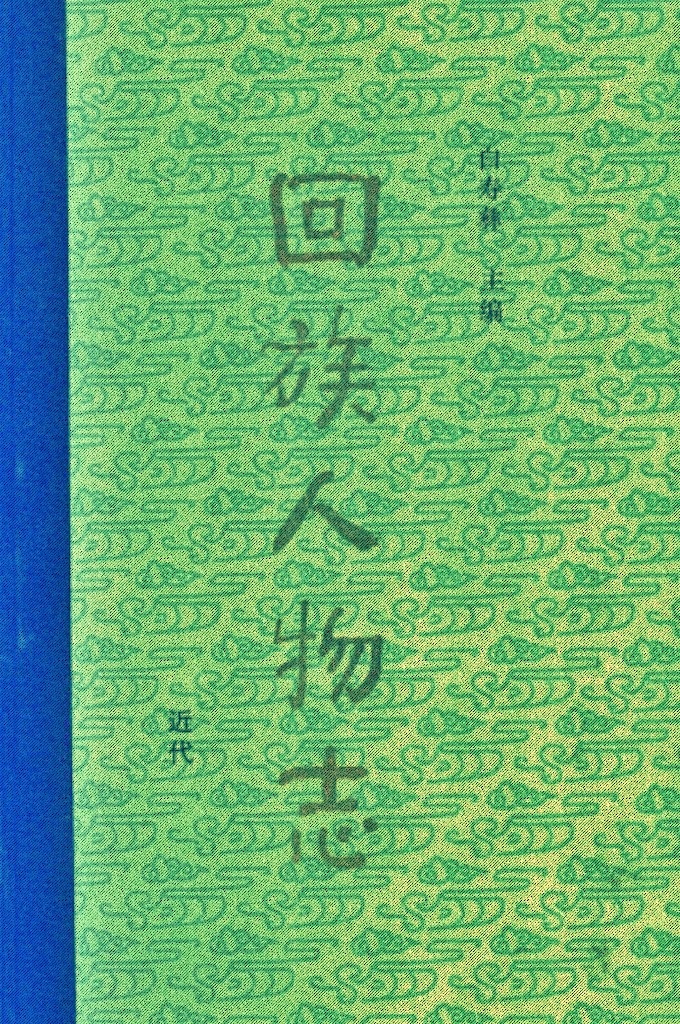 白寿彝 主编
回族人物志
近代